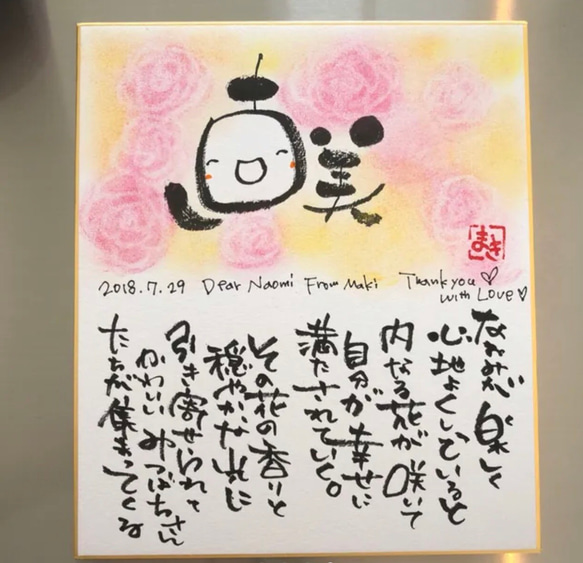 直美
まき
2018.7.29 Dear Naomi From Maki Thank you ♡
with Love ♡
なおみが楽しく
心地よくしていると
内なる花が咲いて
自分が幸せに
満たされていく。
その花の香りと
穏やかな
引き寄せられて
かわいいみつばちさん
たちが集まってくる